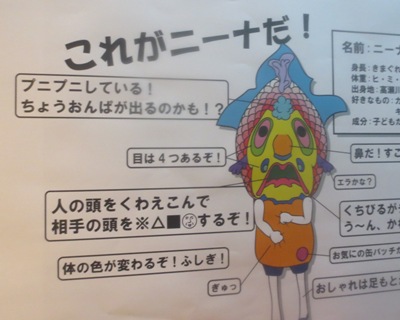 これがニーナだ！
プニプニしている！
ちょうおんぱが出るのかも！？
目は4つあるぞ！
人の頭をくわえこんで
相手の頭を※△■するぞ！
体の色が変わるぞ！ふしぎ！
ぎゅっ
名前：ニーナ
身長：きまぐれ
体重：ヒ・ミ・
出身地：高瀬川
好きなもの：カ
キ
成分：子どもか
鼻だ！すこ
エラかな？
くちびるが
う〜ん、かわ
お気にの缶バッチが
おしゃれは足もとか